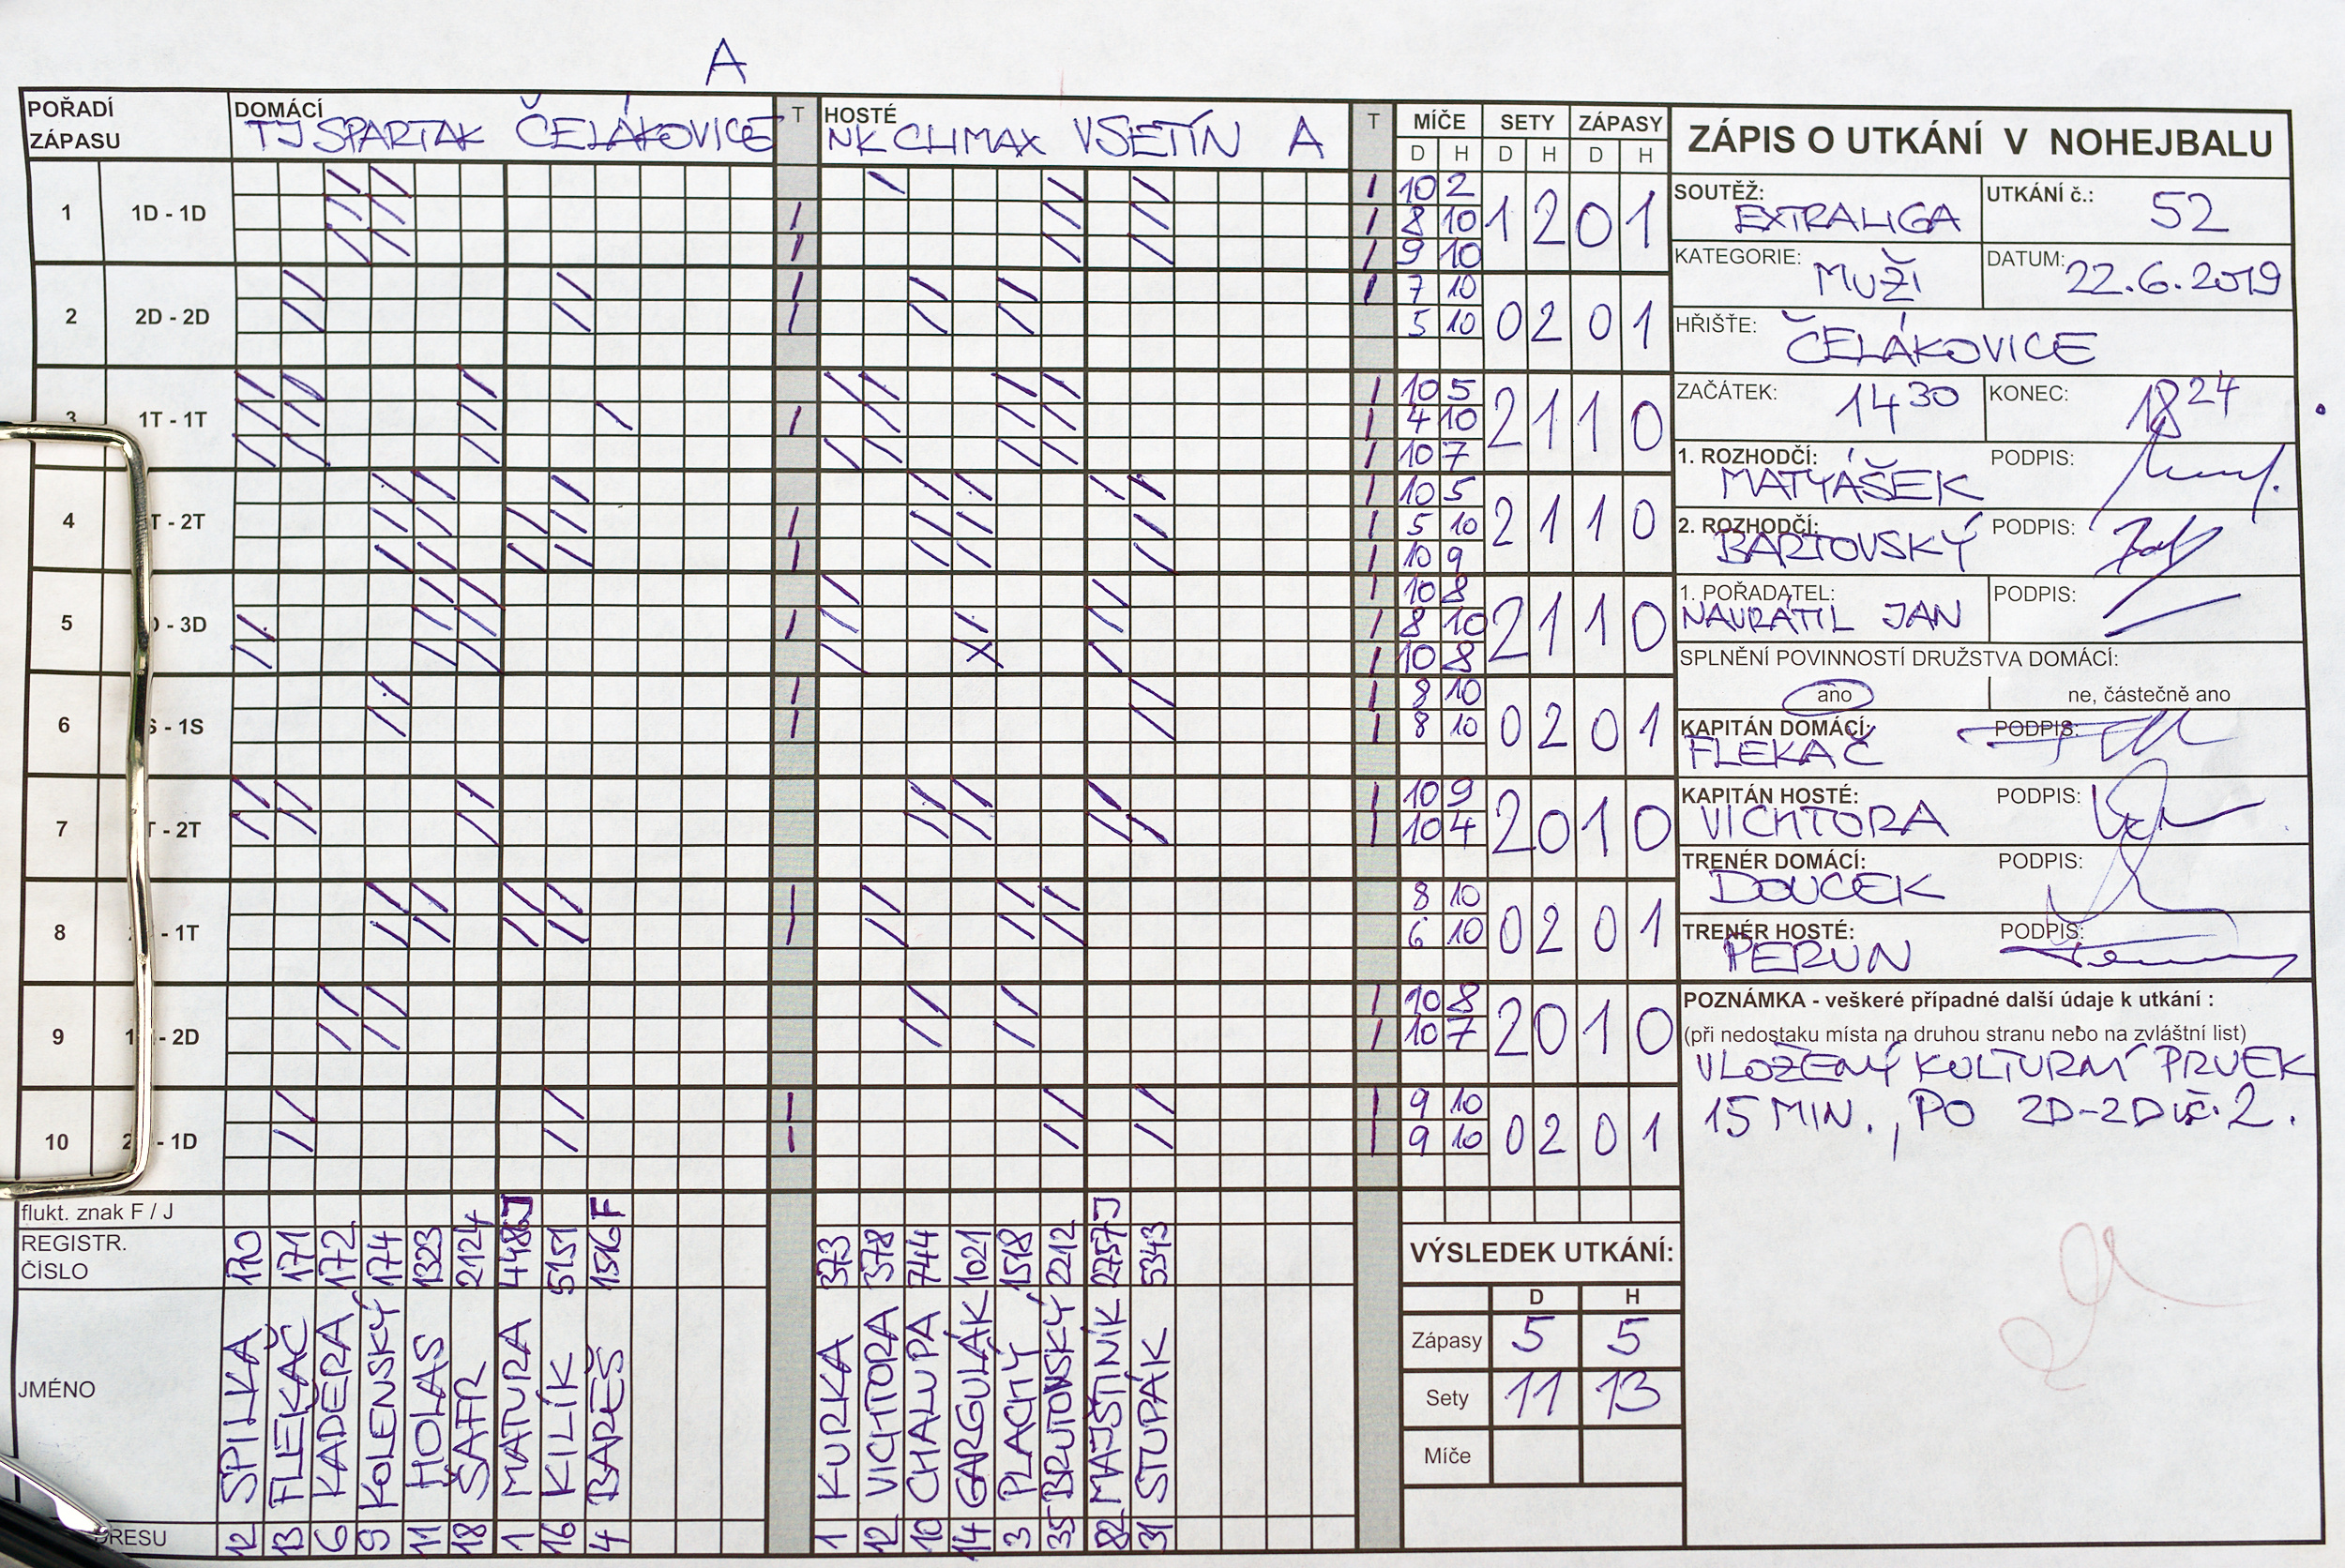 A
POŘADÍ ZÁPASU
DOMÁCÍ TJ SPARTAK ČELÁKOVICE
T
HOSTÉ NK CLIMAX VSETÍN A
T
MÍČE SETY ZÁPASY
D H D H D H
1 1D - 1D 10 2 1 2 0 1
8 10
9 10
2 2D - 2D 7 10 0 2 0 1
5 10
3 1T - 1T 10 5 2 1 1 0
4 10
10 7
4 T - 2T 10 5 2 1 1 0
5 10
10 9
5 - 3D 10 8 2 1 1 0
8 10
10 8
6 S - 1S 8 10 0 2 0 1
8 10
7 T - 2T 10 9 2 0 1 0
10 4
8 - 1T 8 10 0 2 0 1
6 10
9 1 - 2D 10 8 2 0 1 0
10 7
10 2 - 1D 9 10 0 2 0 1
9 10
flukt. znak F / J J F J
REGISTR. ČÍSLO
170 171 172 174 1323 2124 4486 5151 1516
373 378 744 1021 1518 2212 2757 5343
JMÉNO
SPILKA FLEKAČ KADEŘA KOLENSKÝ HOLAS ŠAFR MATURA KILÍK BAREŠ
KURKA VICHTORA CHALUPA GARGULÁK PLACHÝ BRUTOVSKÝ MAJŠTINÍK STUPÁK
DRESU
12 13 6 9 11 18 1 16 4
1 12 10 14 3 35 82 31
VÝSLEDEK UTKÁNÍ:
D H
Zápasy 5 5
Sety 11 13
Míče
ZÁPIS O UTKÁNÍ V NOHEJBALU
SOUTĚŽ: EXTRALIGA UTKÁNÍ č.: 52
KATEGORIE: MUŽI DATUM: 22.6.2019
HŘIŠTE: ČELÁKOVICE
ZAČÁTEK: 14 30 KONEC: 18 24
1. ROZHODČÍ: MATYÁŠEK PODPIS:
2. ROZHODČÍ: BARTOVSKÝ PODPIS:
1. POŘADATEL: NAVRÁTIL JAN PODPIS:
SPLNĚNÍ POVINNOSTÍ DRUŽSTVA DOMÁCÍ:
ano ne, částečně ano
KAPITÁN DOMÁCÍ: FLEKAČ PODPIS:
KAPITÁN HOSTÉ: VICHTORA PODPIS:
TRENÉR DOMÁCÍ: DOUCEK PODPIS:
TRENÉR HOSTÉ: PERUN PODPIS:
POZNÁMKA - veškeré případné další údaje k utkání :
(při nedostaku místa na druhou stranu nebo na zvláštní list)
VLOŽENÝ KULTURNÍ PRVEK
15 MIN., PO 2D-2D č. 2.